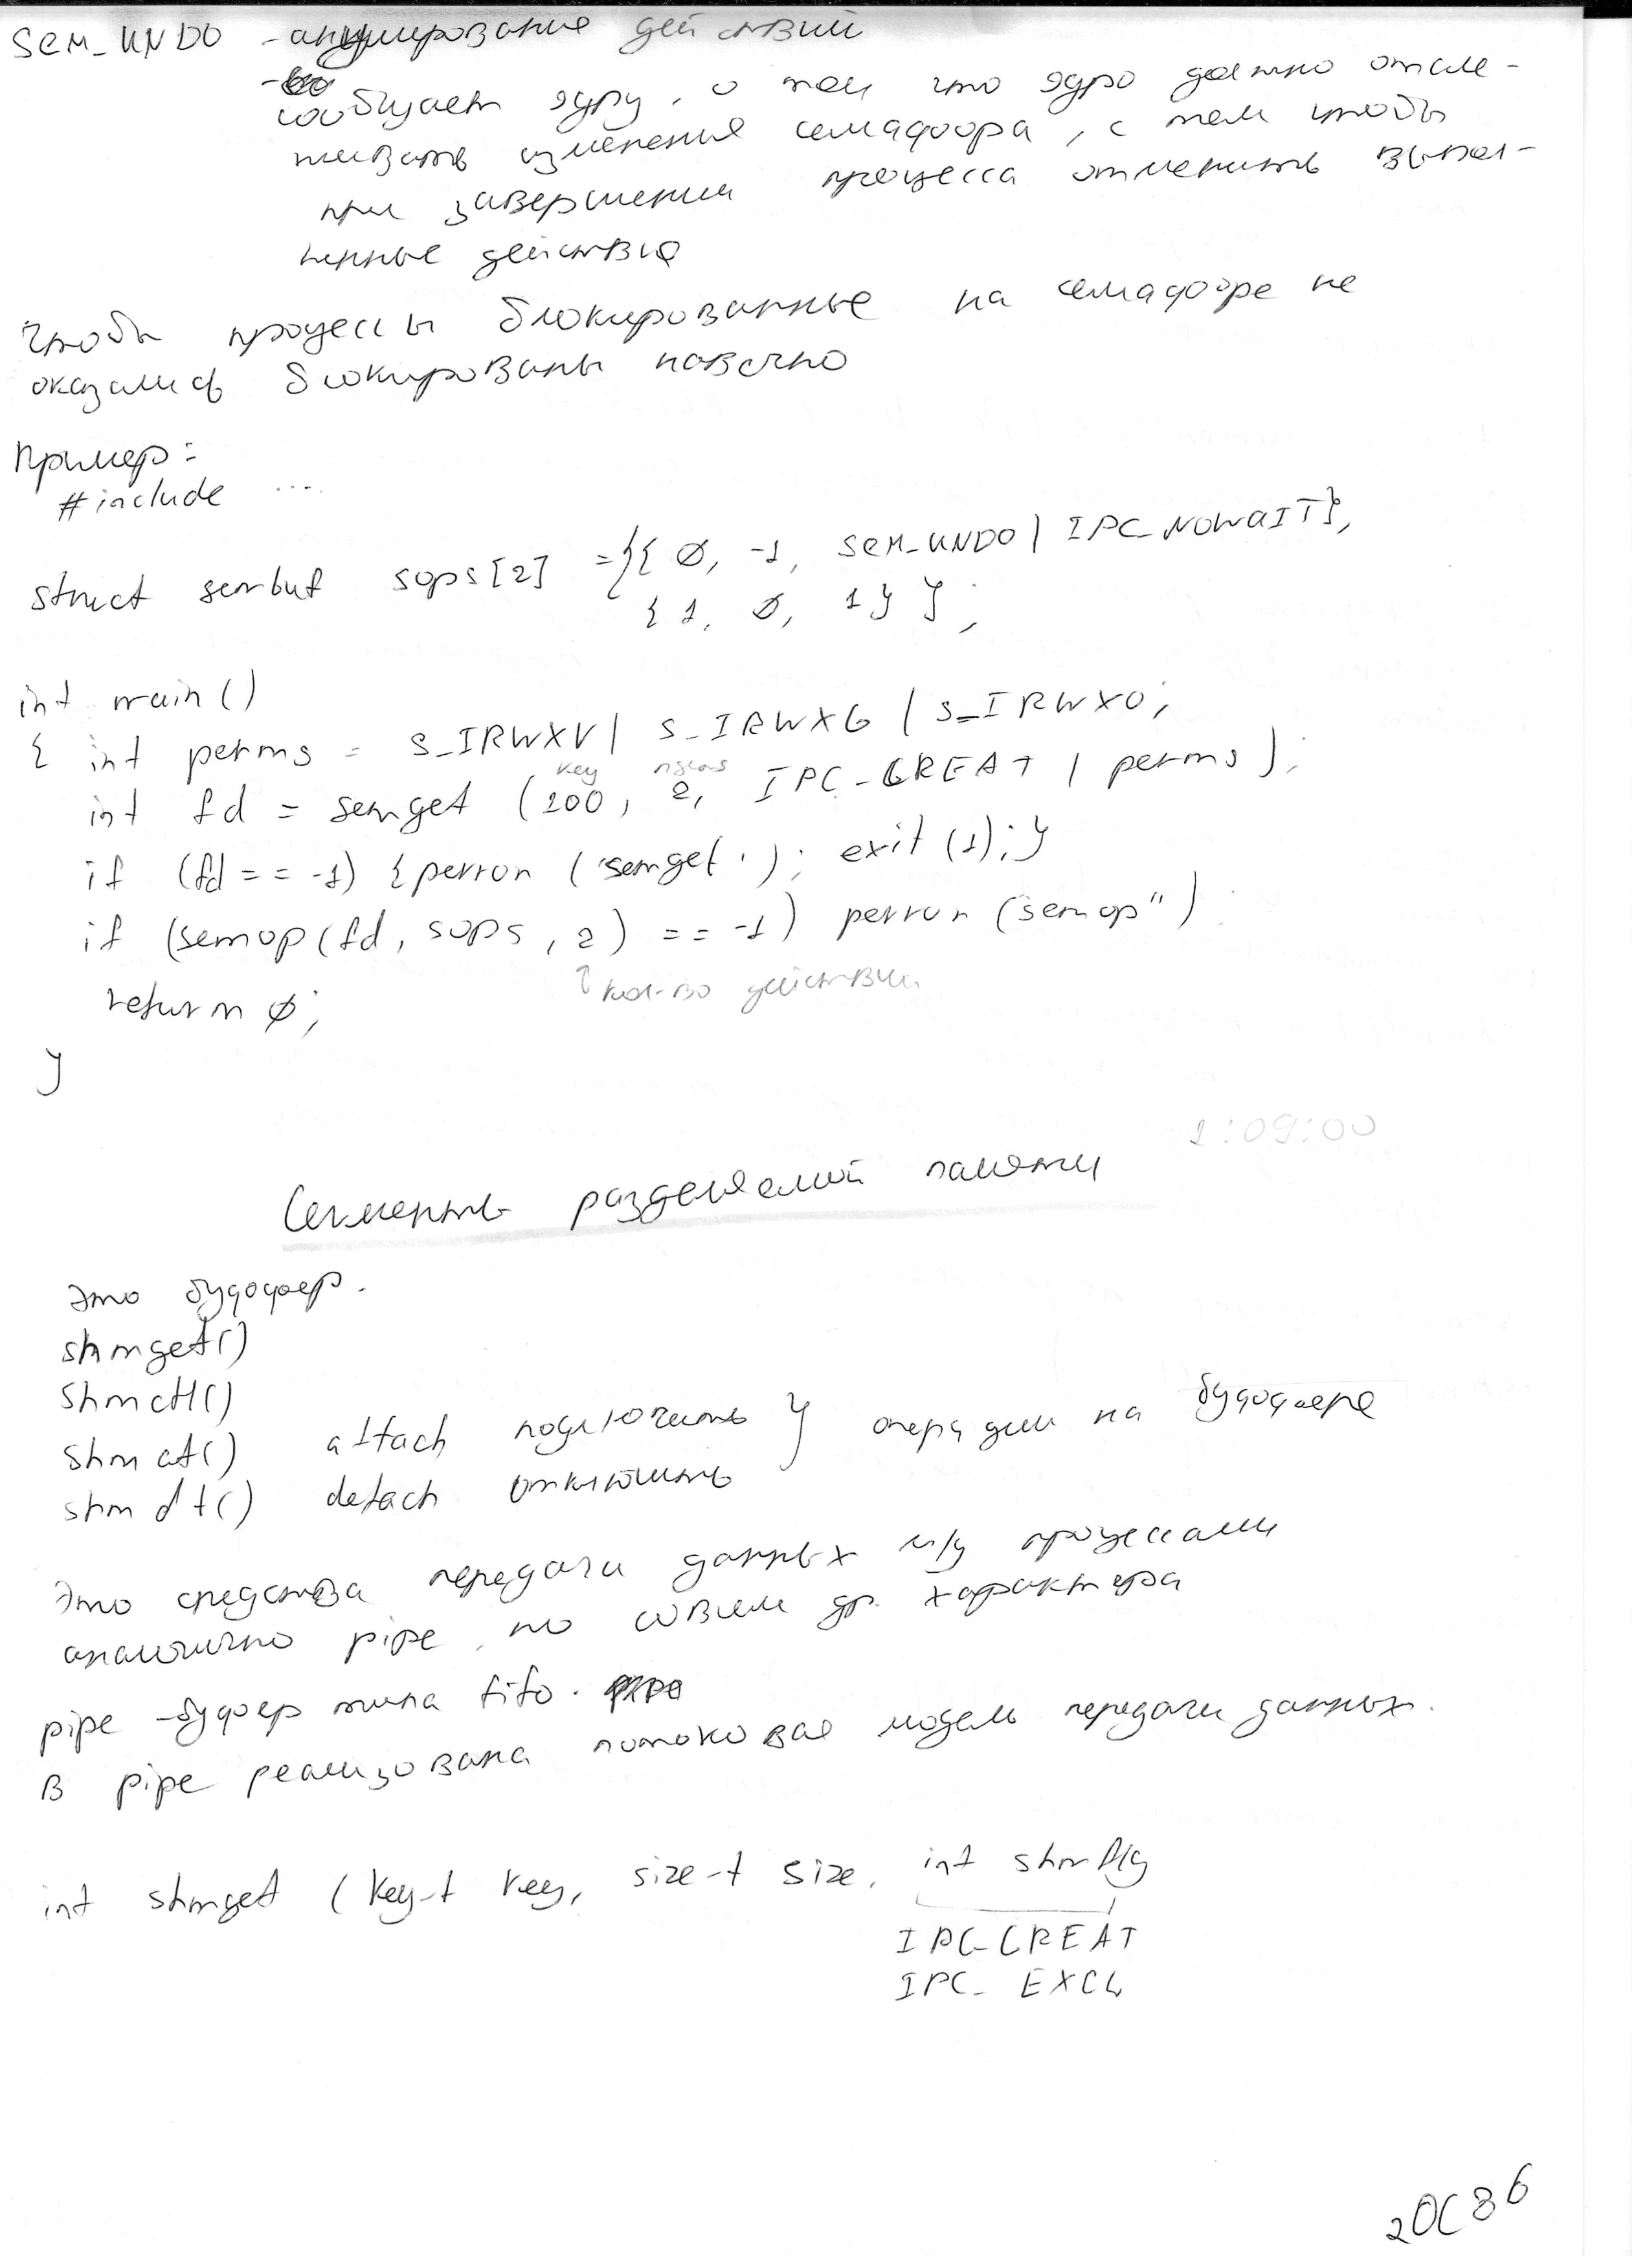 SEM_UNDO - аннулирование действий
сообщает ядру, о том что ядро должно отсле-
живать изменения семафора, с тем чтобы
при завершении процесса отменить выпол-
ненные действия
Чтобы процессы блокированные на семафоре не
оказались блокированы навечно
Пример:
#include ....
struct sembuf sops[2] = {{ 0, -1, SEM_UNDO | IPC_NOWAIT},
{ 1, 0, 1} };
int main()
{ int perms = S_IRWXU | S_IRWXG | S_IRWXO;
key nsems
int fd = semget (100, 2, IPC_CREAT | perms);
if (fd == -1) {perror ("semget"); exit (1);}
if (semop(fd, sops, 2) == -1) perror ("semop");
↑ кол-во действий
return 0;
}
1:09:00
Сегменты разделяемой памяти
Это буфер.
shmget()
shmctl()
shmat() attach подключить } операции на буфере
shmdt() detach отключить
Это средства передачи данных м/у процессами
аналогично pipe, но совсем др. характера
pipe - буфер типа fifo.
В pipe реализована потоковая модель передачи данных.
int shmget (key_t key, size_t size, int shmflg
IPC_CREAT
IPC_EXCL
2ОС В6